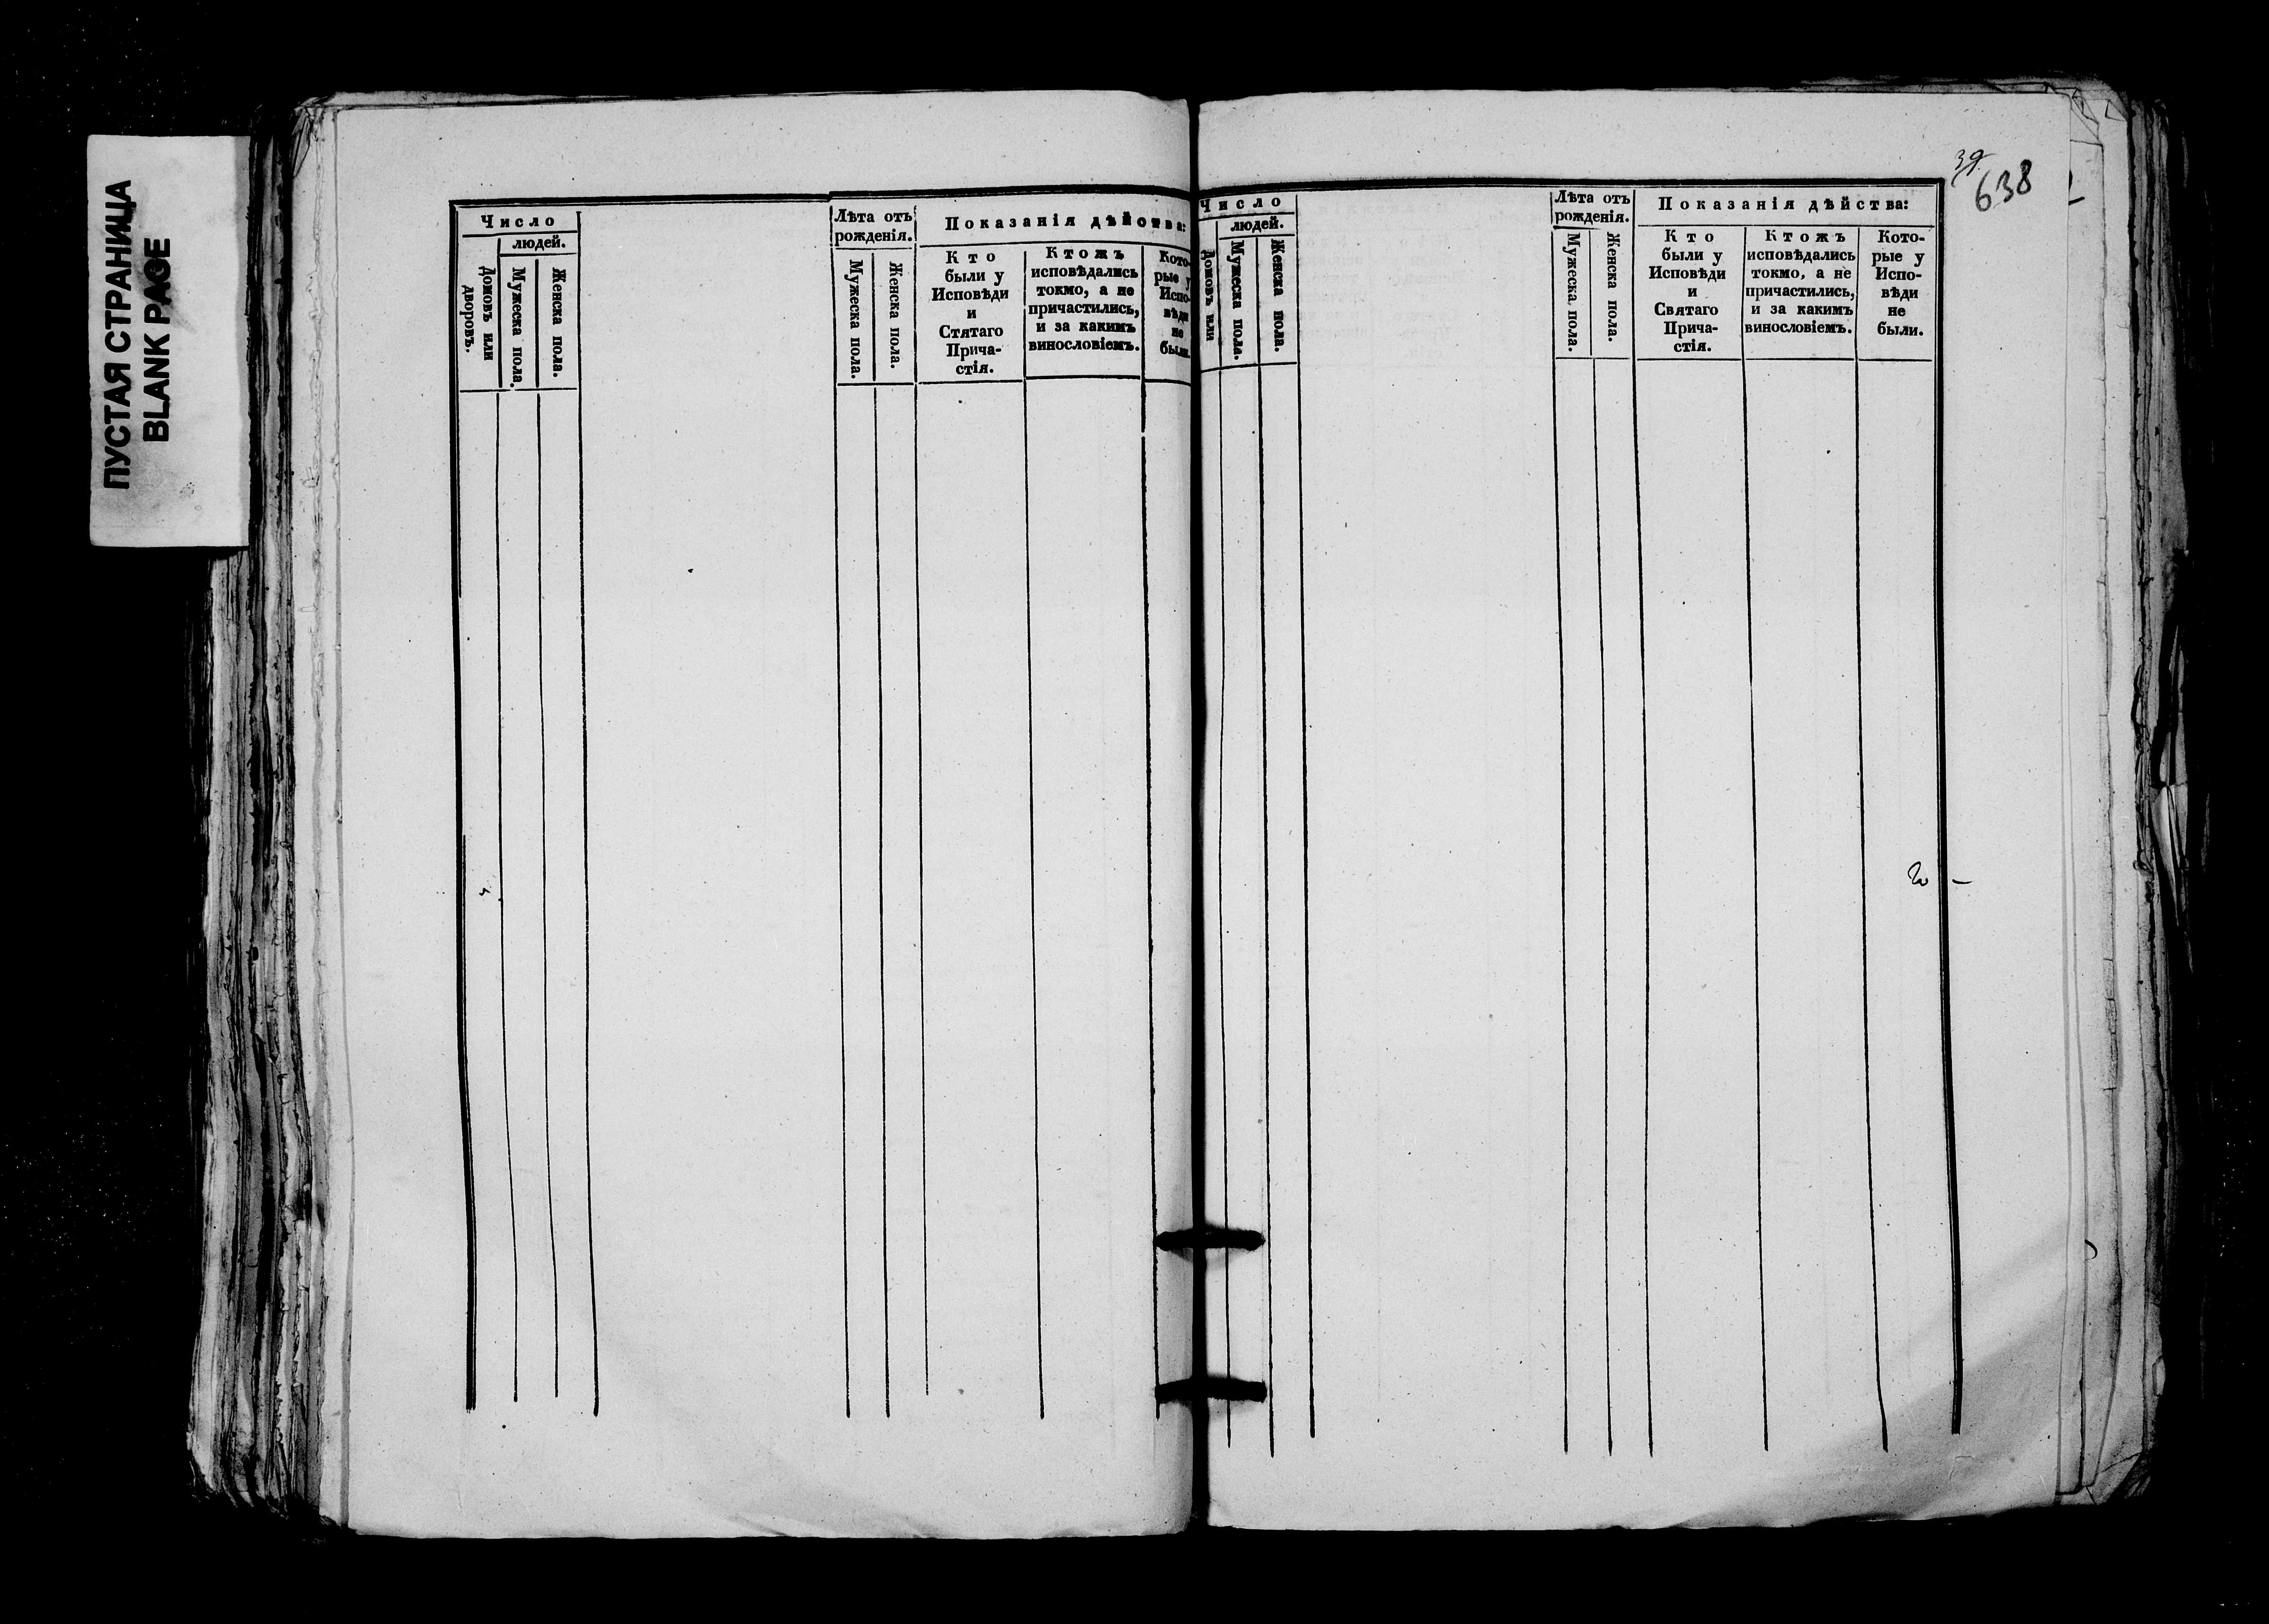 ПУСТАЯ СТРАНИЦА
BLANK PAGE
Число
людей.
Домовъ или
дворовъ.
Мужеска пола.
Женска пола.
Лѣта отъ
рожденія.
Мужеска пола.
Женска пола.
Показанія дѣйства:
Кто
были у
Исповѣди
и
Стятаго
Прича-
стія.
Ктожъ
исповѣдались
токмо, а не
причастились,
и за какимъ
винословіемъ.
Кото-
рые у
Испо-
вѣди
не
были.
638
Число
людей.
Домовъ или
Мужеска пола.
Женска пола.
Лѣта отъ
рожденія.
Мужеска пола.
Женска пола.
Показанія дѣйства:
Кто
были у
Исповѣди
и
Святаго
Прича-
стія.
Ктожъ
исповѣдались
токмо, а не
причастились,
и за какимъ
винословіемъ.
Кото-
рые у
Испо-
вѣди
не
были.